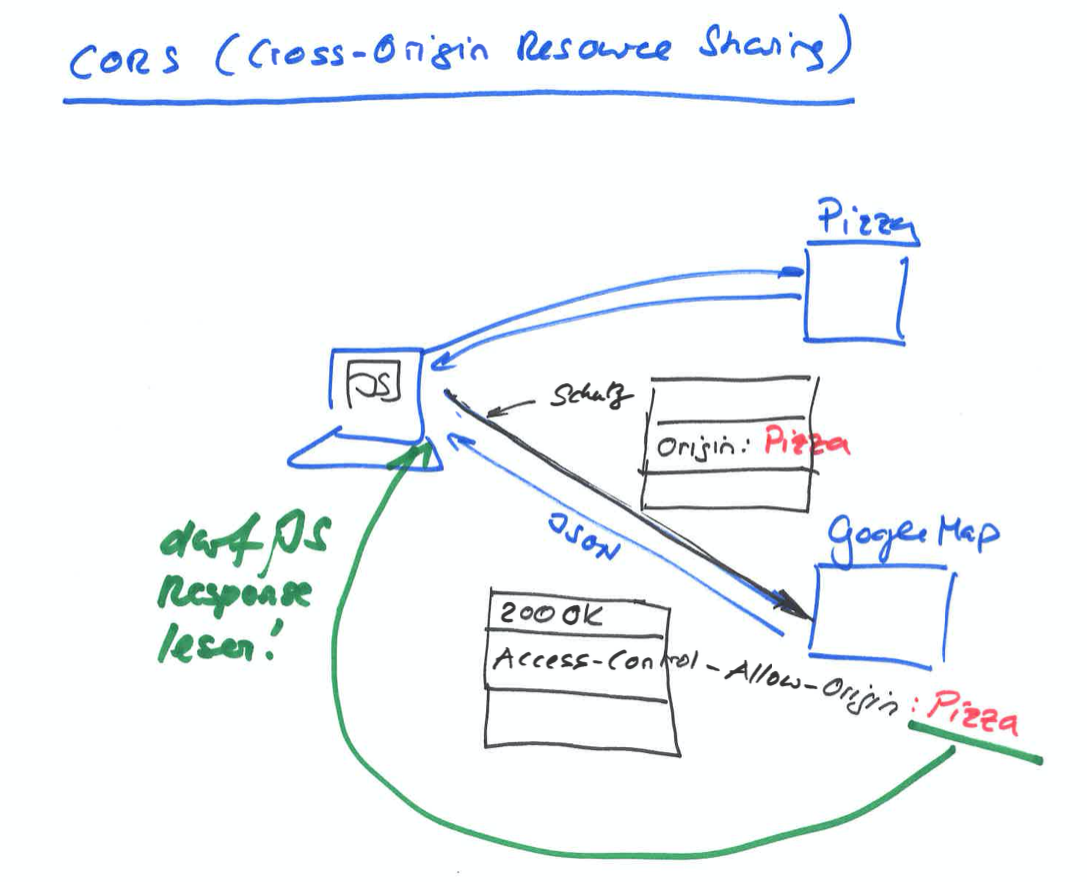 CORS (Cross-Origin Resource Sharing)
Pizza
JS
Schutz
Origin: Pizza
JSON
Google Map
darf JS
Response
lesen!
200 OK
Access-Control-Allow-Origin: Pizza